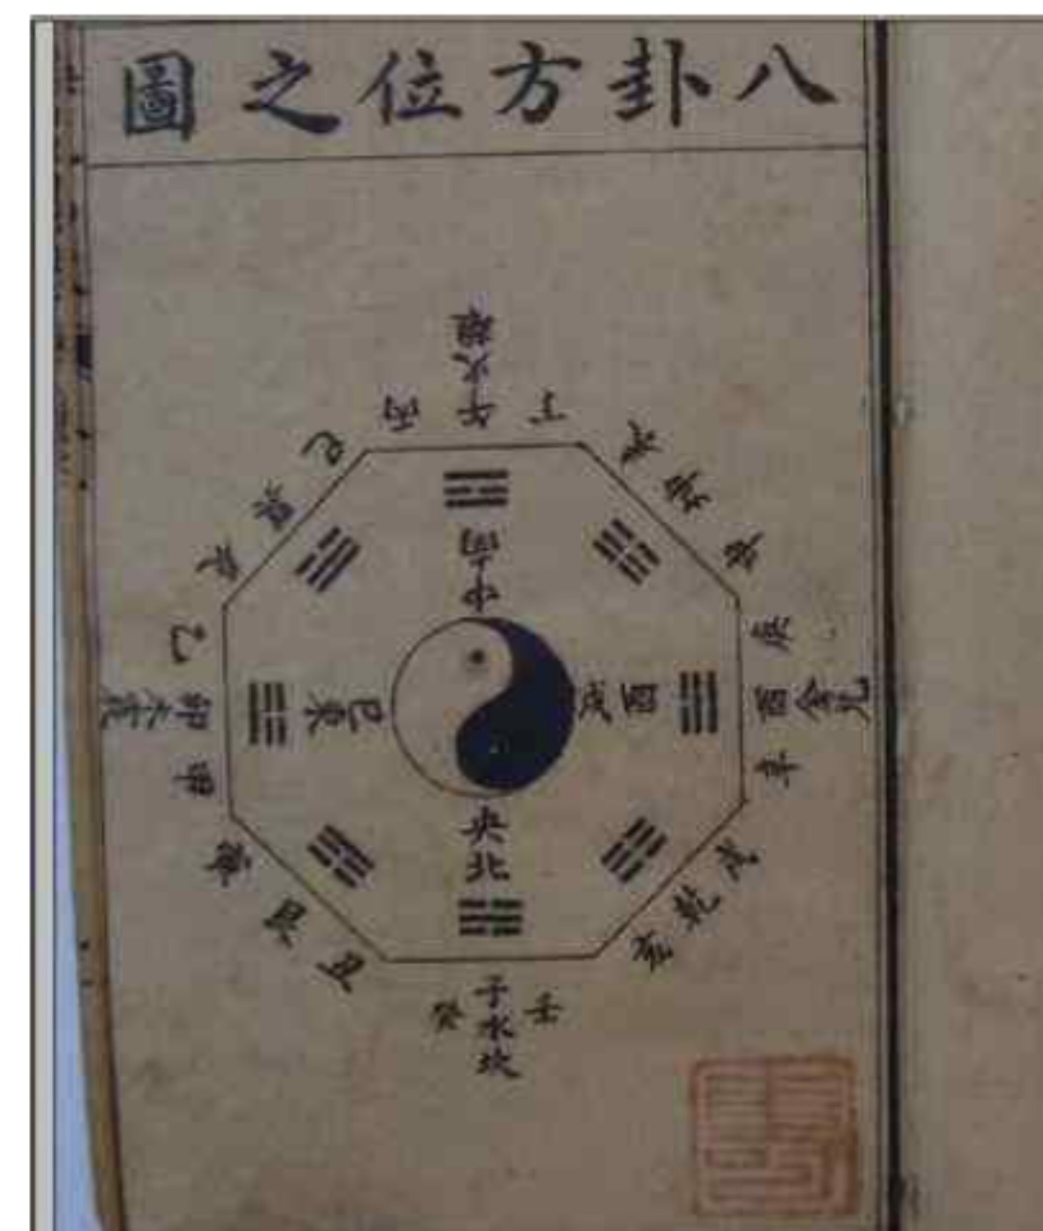 八卦方位之圖
午火離
丙
丁
巳
巽
辰
未
坤
乙
卯木震
甲
酉金兌
辛
南中
東己
戊西
央北
寅
艮
丑
戌
乾
亥
癸
子水坎
壬